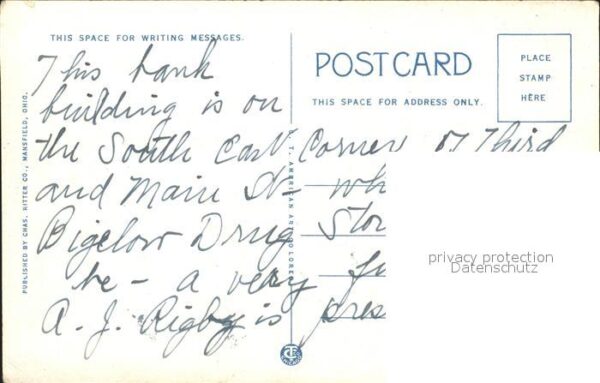 THIS SPACE FOR WRITING MESSAGES.
POST CARD
THIS SPACE FOR ADDRESS ONLY.
PLACE
STAMP
HERE
This bank
building is on
the South East Corner of Third
and Main St - wh
Bigelow Drug Stor
be - a very fi
A. J. Rigby is pres
PUBLISHED BY CHAS. RITTER CO., MANSFIELD, OHIO.
C.T. AMERICAN ART COLORED
privacy protection
Datenschutz